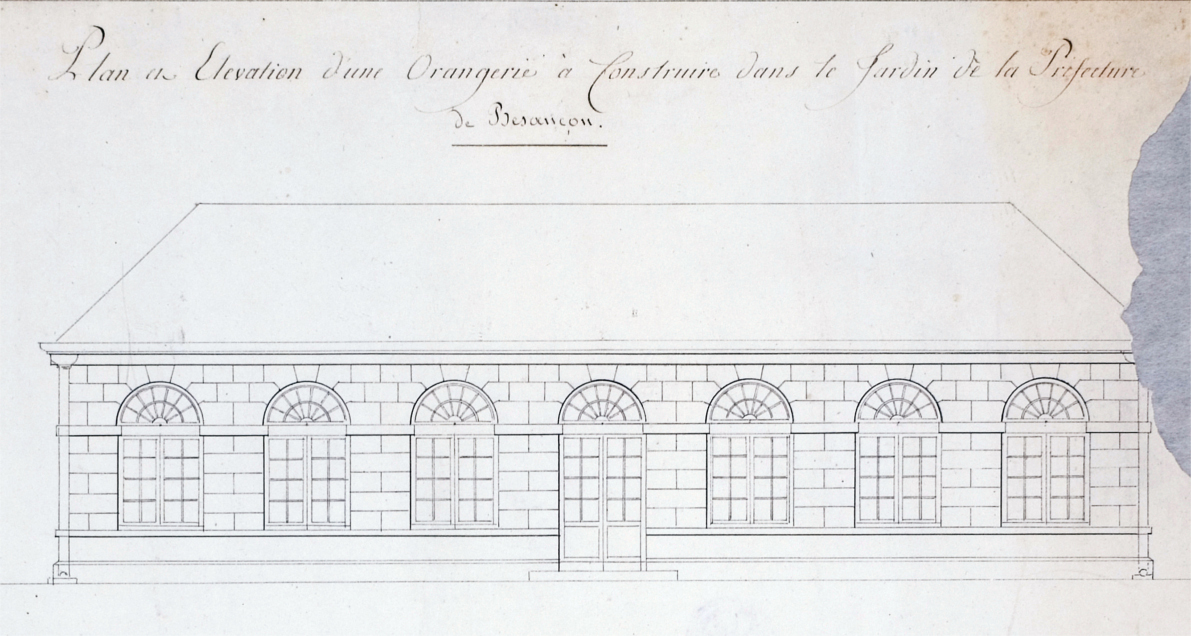 Plan et Elevation d'une Orangerie à Construire dans le Jardin de la Préfecture
de Besançon.